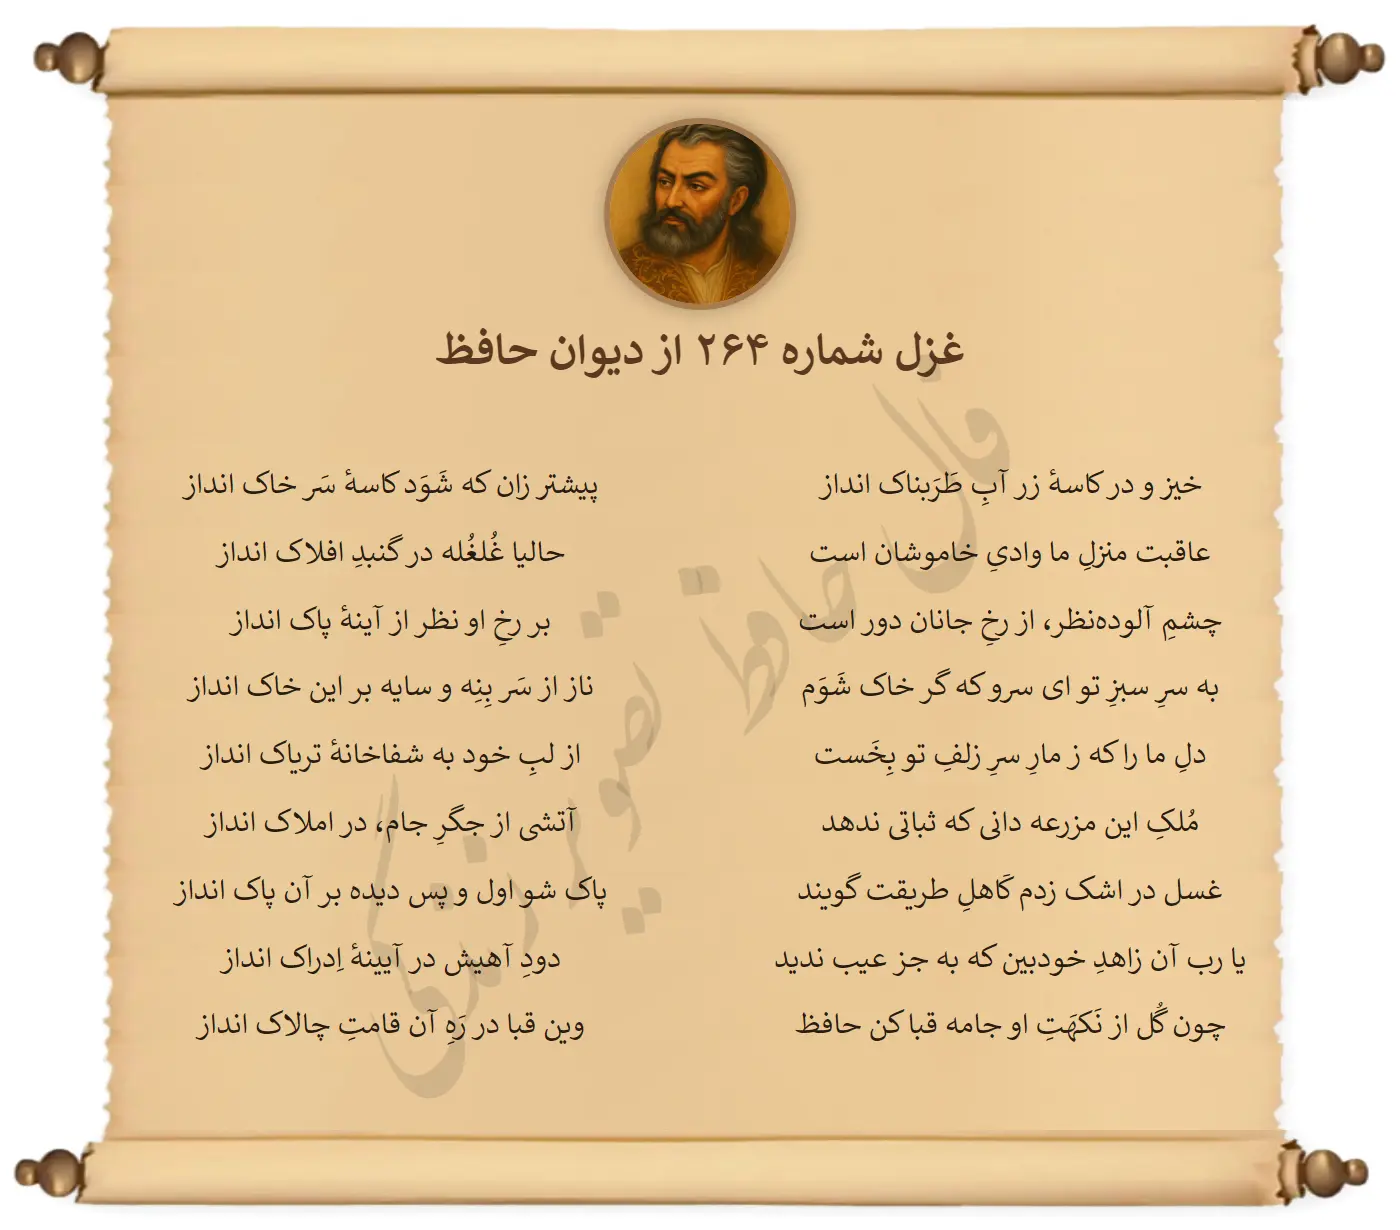 غزل شماره ۲۶۴ از دیوان حافظ
خیز و در کاسهٔ زر آبِ طَرَبناک انداز پیشتر زان که شَوَد کاسهٔ سَر خاک انداز
عاقبت منزلِ ما وادیِ خاموشان است حالیا غُلغُله در گنبدِ افلاک انداز
چشمِ آلوده‌نظر، از رخِ جانان دور است بر رخِ او نظر از آینهٔ پاک انداز
به سرِ سبزِ تو ای سرو که گر خاک شَوَم ناز از سَر بِنِه و سایه بر این خاک انداز
دلِ ما را که ز مارِ سرِ زلفِ تو بِخَست از لبِ خود به شفاخانهٔ تریاک انداز
مُلکِ این مزرعه دانی که ثباتی ندهد آتشی از جگرِ جام، در املاک انداز
غسل در اشک زدم کَاهلِ طریقت گویند پاک شو اول و پس دیده بر آن پاک انداز
یا رب آن زاهدِ خودبین که به جز عیب ندید دودِ آهیش در آیینهٔ اِدراک انداز
چون گُل از نَکهَتِ او جامه قبا کن حافظ وین قبا در رَهِ آن قامتِ چالاک انداز
فال حافظ تصویر زندگی